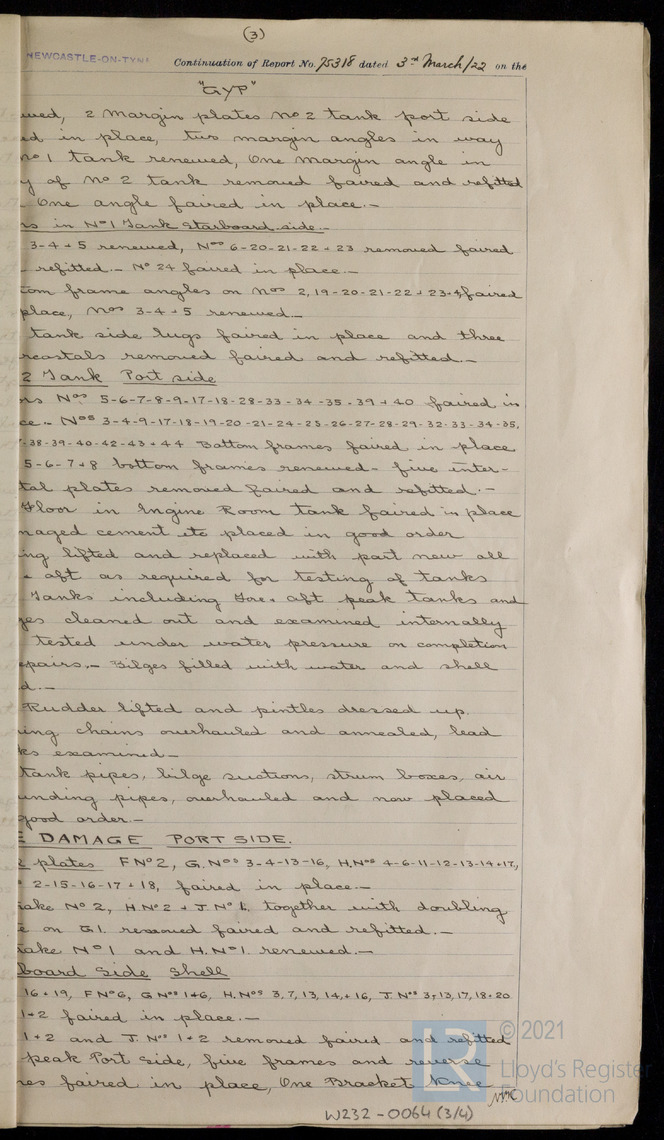 (3)
NEWCASTLE-ON-TYNE
Continuation of Report No. 75318 dated 3rd March/22 on the
"GYP"
wed, 2 margin plates No 2 tank port side
ed in place, two margin angles in way
No 1 tank renewed, One margin angle in
y of No 2 tank removed faired and refitted
One angle faired in place.-
rs in No 1 Tank Starboard side.-
3-4+5 renewed, Nos 6-20-21-22+23 removed faired
refitted.- No 24 faired in place.-
tom frame angles on Nos 2,19-20-21-22+23+4 faired
place, Nos 3-4+5 renewed.-
tank side lugs faired in place and three
rcostals removed faired and refitted.-
2 Tank Port side
rs Nos 5-6-7-8-9-17-18-28-33-34-35-39+40 faired in
ce - Nos 3-4-9-17-18-19-20-21-24-25-26-27-28-29-32-33-34-35,
-38-39-40-42-43+44 Bottom frames faired in place
5-6-7+8 bottom frames renewed- five inter-
tal plates removed faired and refitted.-
Floor in Engine Room tank faired in place
maged cement etc placed in good order
ing lifted and replaced with part new all
e aft as required for testing of tanks
Tanks including Fore + aft peak tanks and
ges cleaned out and examined internally
tested under water pressure on completion
epairs.- Bilges filled with water and shell
d.-
Rudder lifted and pintles dressed up.
ring chains overhauled and annealed, lead
ks examined-
tank pipes, bilge suctions, strum boxes, air
unding pipes, overhauled and now placed
good order.-
E DAMAGE PORT SIDE.
l plates F No 2, G. Nos 3-4-13-16, H. Nos 4-6-11-12-13-14+17,
2-15-16-17+18, faired in place.-
rake No 2, H. No 2 + J. No 1, together with doubling
e on G1. removed faired and refitted.-
take No 1 and H. No 1. renewed.-
board Side Shell
16+19, F No 6, G Nos 1+6, H. Nos 3, 7, 13, 14,+16, J. Nos 3,13,17,18+20
1+2 faired in place.-
1+2 and J. Nos 1+2 removed faired and refitted
peak Port side, five frames and reverse
mes faired in place, One Bracket Knee
W232-0064 (3/4)
LR
© 2021
Lloyd's Register
Foundation